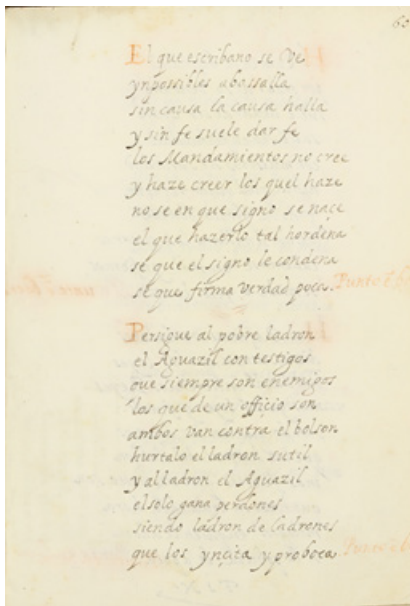 60
El que escribano se ve
ynpossibles abassalla
sin causa la causa halla
y sin fe suele dar fe
los Mandamientos no cree
y haze creer los quel haze
no se en que signo se naçe
el que hazerlo tal hordena
se que el signo le condena
se que firma verdad poca. Punto
Persigue al pobre ladron
el Aguazil con testigos
que siempre son enemigos
los que de un officio son
ambos van contra el bolson
hurtalo el ladron sutil
y al ladron el Aguazil
el solo gana perdones
siendo ladron de ladrones
que los yncita y proboca. Punto